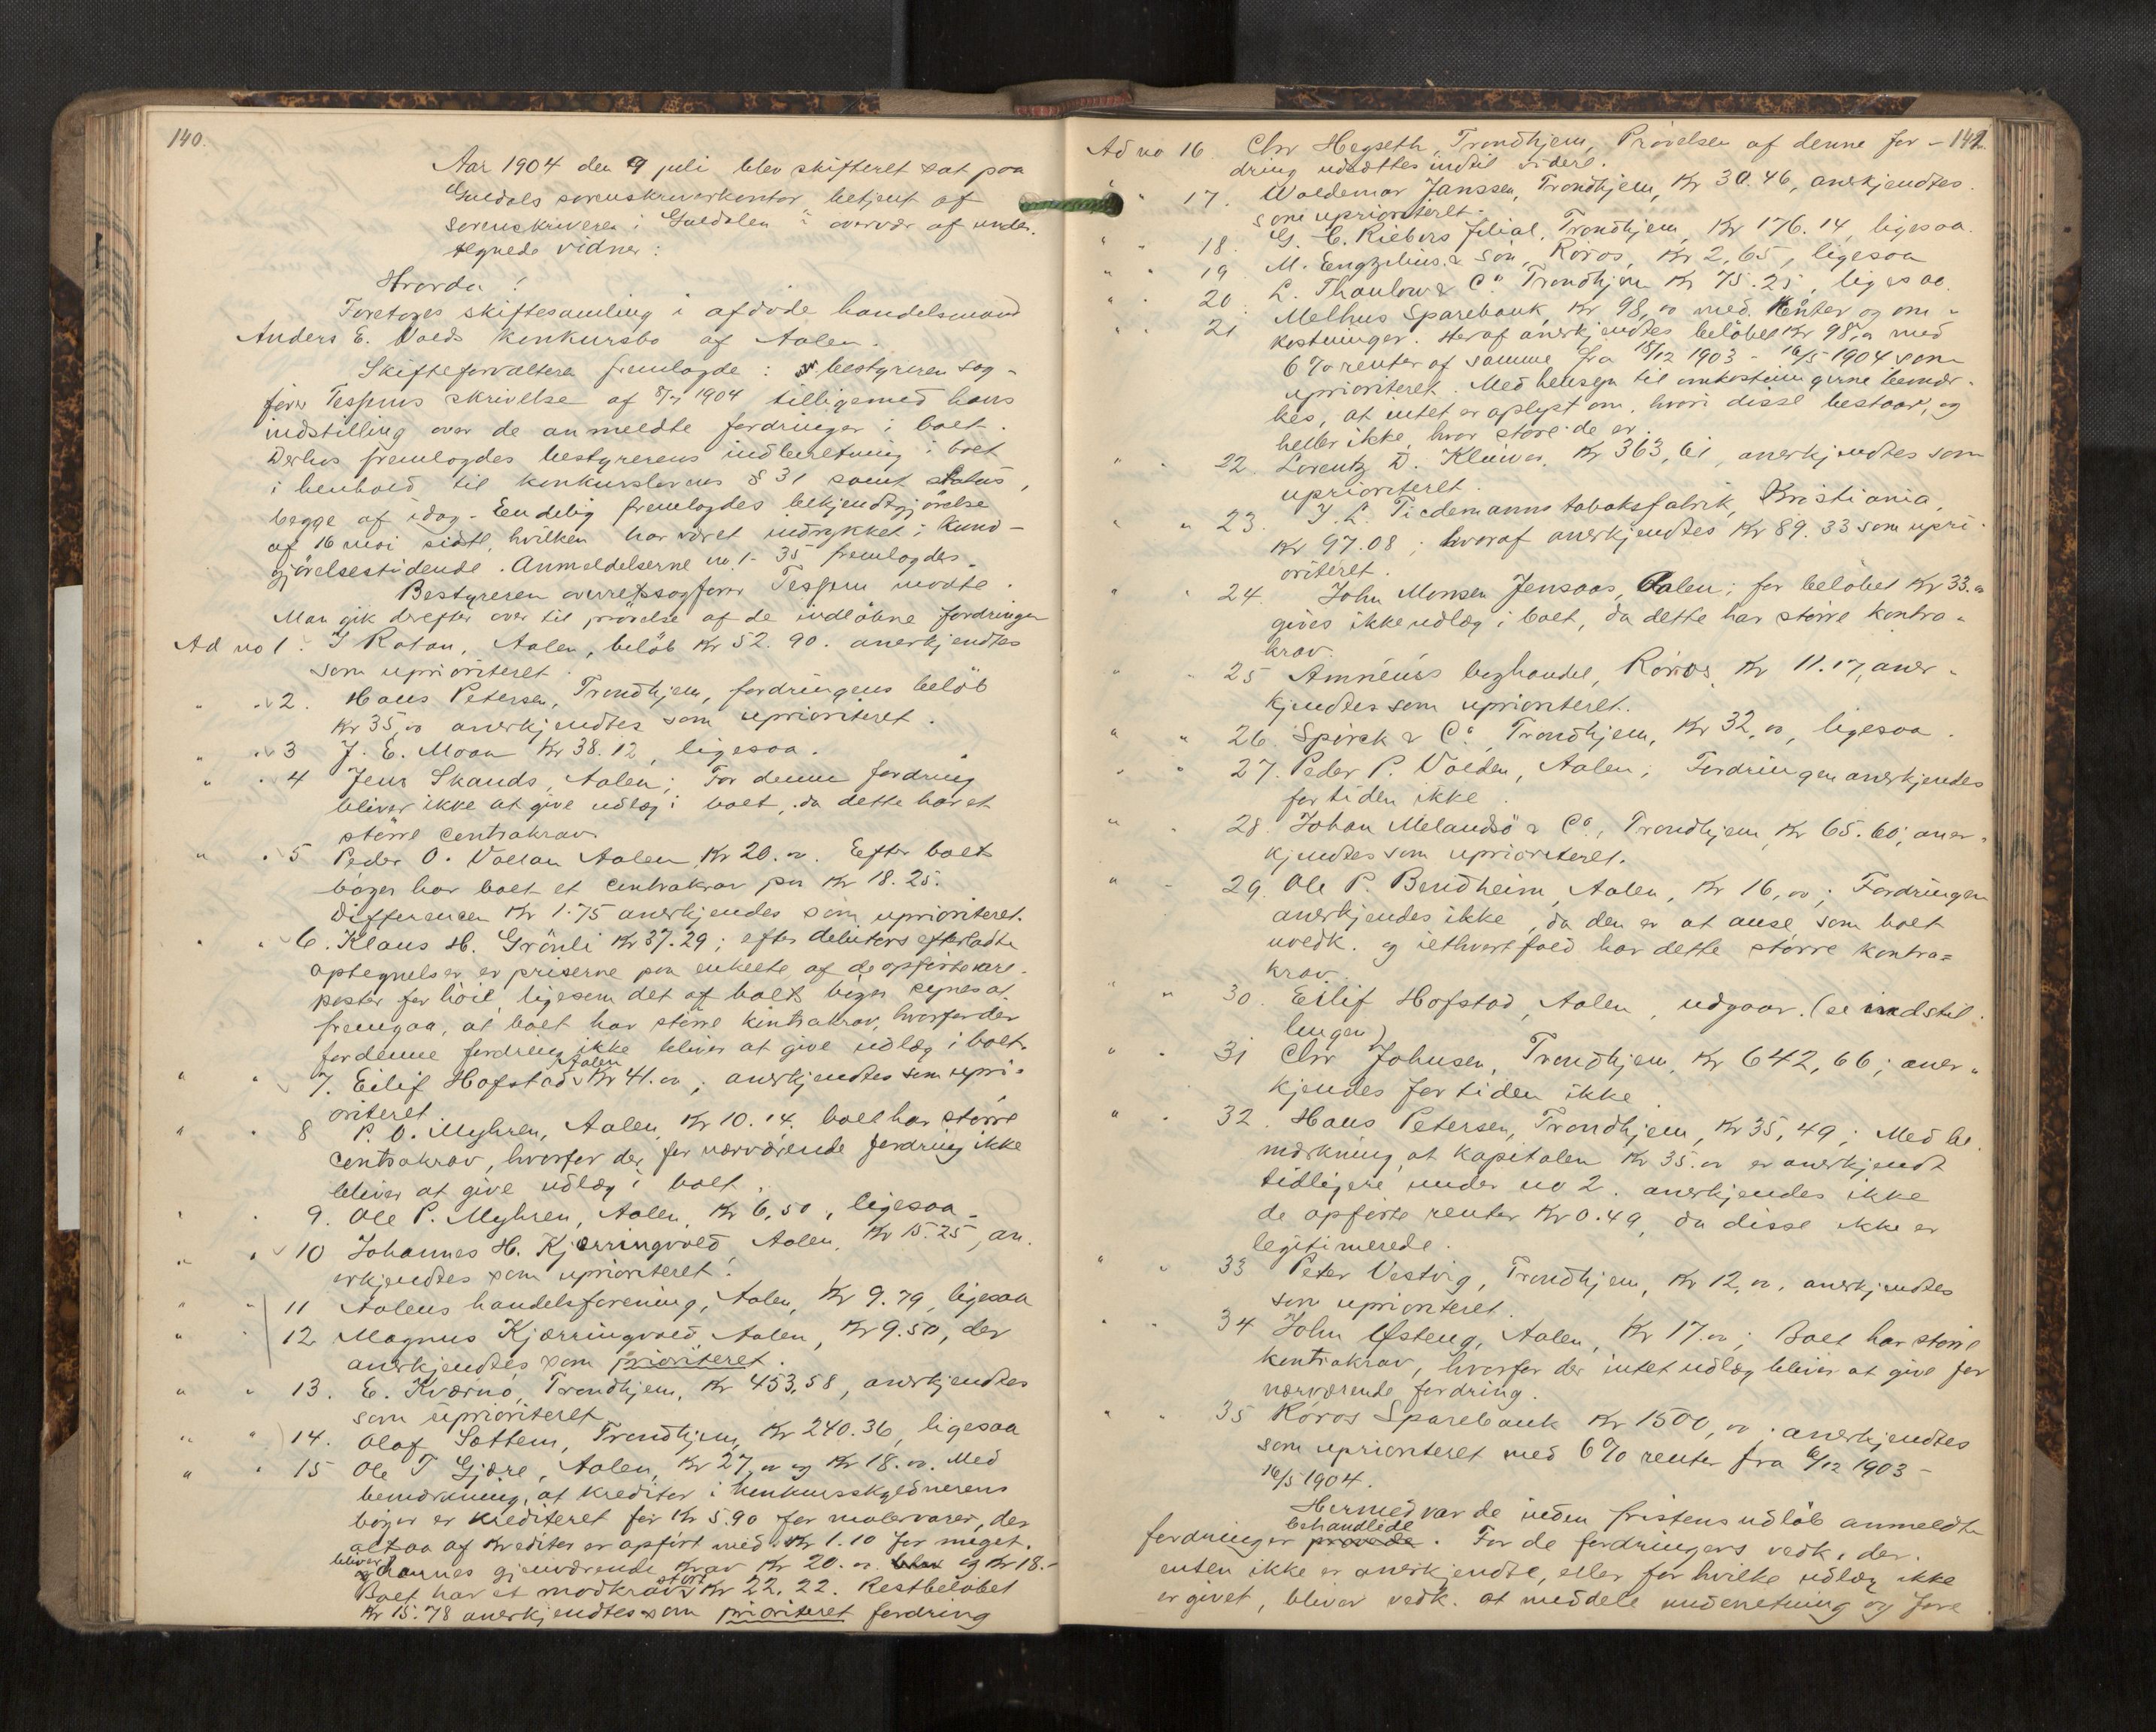 140.
Aar 1904 den 9 juli blev skifteret sat paa
Guldals sorenskriverkontor betjent af
sorenskriveren i Guldalen i overvær af under-
tegnede vidner:
Hvorda!
Foretoges skiftesamling i afdöde handelsmand
Anders E. Volds konkursbo af Aalen.
Skifteforvalteren fremlagde: bestyreren sag-
förer Tessems skrivelse af 8/7 1904 tilligemed hans
indstilling over de anmeldte fordringer i boet.
Derhos fremlagdes bestyrerens indberetning i boet
i henhold til konkurslovens § 31 samt status,
begge af idag. Endelig fremlagdes bekjendtgjörelse
af 16 mai sidstl, hvilken har været indrykket i Kund-
gjörelsestidende. Anmeldelserne no. 1-35 fremlagdes.
Bestyreren overretssagförer Tessem mödte.
Man gik derefter over til prövelse af de indlöbne fordringer
Ad no 1. I Ratan, Aalen, belöb Kr 52.90. anerkjendtes
som uprioriteret.
" " 2. Hans Petersen, Trondhjem, fordringens belöb
Kr 35,00 anerkjendtes som uprioriteret.
" " 3 J. E. Moan Kr 38.12, ligesaa.
" " 4 Jens Skands, Aalen; For denne fordring
bliver ikke at give udlæg i boet, da dette har et
större Contrakrav
" " 5 Peder O. Vollan Aalen Kr 20.00. Efter boets
böger har boet et Contrakrav paa Kr 18.25.
Differencen Kr 1.75 anerkjendes som uprioriteret.
" " 6. Klaus H. Grönli Kr 37.29; efter debitors efterladte
optegnelser er priserne paa enkelte af de opförte vare-
poster for höie ligesom det af boets böger synes at
fremgaa, at boet har större kontrakrav, hvorfor der
for denne fordring ikke bliver at give udlæg i boet.
" " 7. Eilif Hofstad Aalen Kr 41.00; anerkjendtes som upri-
oriteret
" " 8 P. O. Myhren, Aalen Kr 10.14. boet har större
Contrakrav, hvorfor der for nærværende fordring ikke
bliver at give udlæg i boet.
" " 9. Ole P. Myhren, Aalen, Kr 6,50, ligesaa.
" " 10 Johannes H. Kjerringvold, Aalen, Kr 15.25, an-
erkjendtes som uprioriteret.
" " 11 Aalens handelsforening, Aalen, Kr 9.79, ligesaa
" " 12 Magnus Kjærringvold Aalen, Kr 9.50, der
anerkjendtes som prioriteret.
" " 13. E. Kværnö, Trondhjem, Kr 453,58, anerkjendtes
som uprioriteret
" " 14. Olaf Sottem, Trondhjem, Kr 240.36, ligesaa
" " 15 Ole T Gjære, Aalen, Kr 27,00 og Kr 18.00. Med
bemærkning, at kreditor i konkursskyldnerens
böger er krediteret for Kr 5.90 for malervarer, der
altsaa af kreditor er opfört med Kr 1.10 for meget.
bliver hannes gjenværende Krav Kr 20.00 og Kr 18.-
Boet har et modkrav stort Kr 22.22. Restbelöbet
Kr 15.78 anerkjendtes som prioriteret fordring
141.
Ad no 16 Chr Hegseth, Trondhjem, Prövelsen af denne for-
dring udsættes indtil videre.
" " 17. Waldemar Janssen, Trondhjem, Kr 30.46, anerkjendtes
som uprioriteret.
" " 18. G. C. Riebers filial, Trondhjem, Kr 176.14, ligesaa.
" " 19 M. Engzelius & Sön, Röros, Kr 2,65, ligesaa
" " 20 L. Thaulow & Co Trondhjem Kr 75.25, ligesaa.
" " 21 Melhus Sparebank, Kr 98,00 med Renter og om-
kostninger. Heraf anerkjendtes belöbet Kr 98,00 med
6 % renter af samme fra 18/12 1903 - 16/5 1904 som
uprioriteret. Med hensyn til omkostningerne bemær-
kes, at intet er oplyst om, hvori disse bestaar, og
heller ikke, hvor store de er.
" " 22. Lorentz D. Klüwer, Kr 363,61, anerkjendtes som
uprioriteret.
" " 23. J. L. Tiedemanns tobaksfabrik, Kristiania,
Kr 97.08; hvoraf anerkjendtes Kr 89.33 som upri-
oriteret.
" " 24. John Monsen Jensaas, Aalen; for belöbet Kr 33.00
gives ikke udlæg i boet, da dette har större kontra-
krav.
" " 25 Amnéus boghandel, Röros, Kr 11.17, aner-
kjendtes som uprioriteret.
" " 26. Spörck & Co, Trondhjem, Kr 32,00, ligesaa.
" " 27. Peder P. Volden, Aalen; Fordringen anerkjendes
for tiden ikke.
" " 28. Johan Melandsö & Co, Trondhjem, Kr 65.60; aner-
kjendtes som uprioriteret.
" " 29. Ole P. Bendheim, Aalen, Kr 16,00; Fordringen
anerkjendes ikke, da den er at anse som boet
uvedk. og iethvertfald har dette större kontra=
krav.
" " 30. Eilif Hofstad, Aalen, udgaar. (se indstil-
lingen)
" " 31 Chr Johnsen, Trondhjem, Kr 642,66; aner-
kjendes for tiden ikke
" " 32. Hans Petersen, Trondhjem, Kr 35,49; Med be-
mærkning, at kapitalen Kr 35.00 er anerkjendt
tidligere under no 2. anerkjendes ikke
de opförte renter Kr 0.49, da disse ikke er
legitimerede.
" " 33 Peter Vestvig, Trondhjem, Kr 12,00, anerkjendtes
som uprioriteret.
" " 34 John Østeng, Aalen, Kr 17.00; Boet har större
kontrakrav, hvorfor der intet udlæg bliver at give for
nærværende fordring.
" " 35 Röros Sparebank Kr 1500,00; anerkjendtes
som uprioriteret med 6 % renter fra 6/12 1903 -
16/5 1904.
Hermed var de inden fristens udlöb anmeldte
fordringer prövede behandlede. For de fordringers vedk., der
enten ikke er anerkjendte, eller for hvilke udlæg ikke
er givet, bliver vedk. at meddele underretning og fore